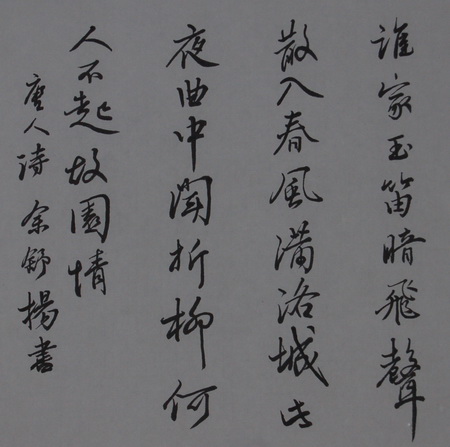 誰家玉笛暗飛聲
散入春風滿洛城此
夜曲中聞折柳何
人不起故園情
唐人詩余舒揚書